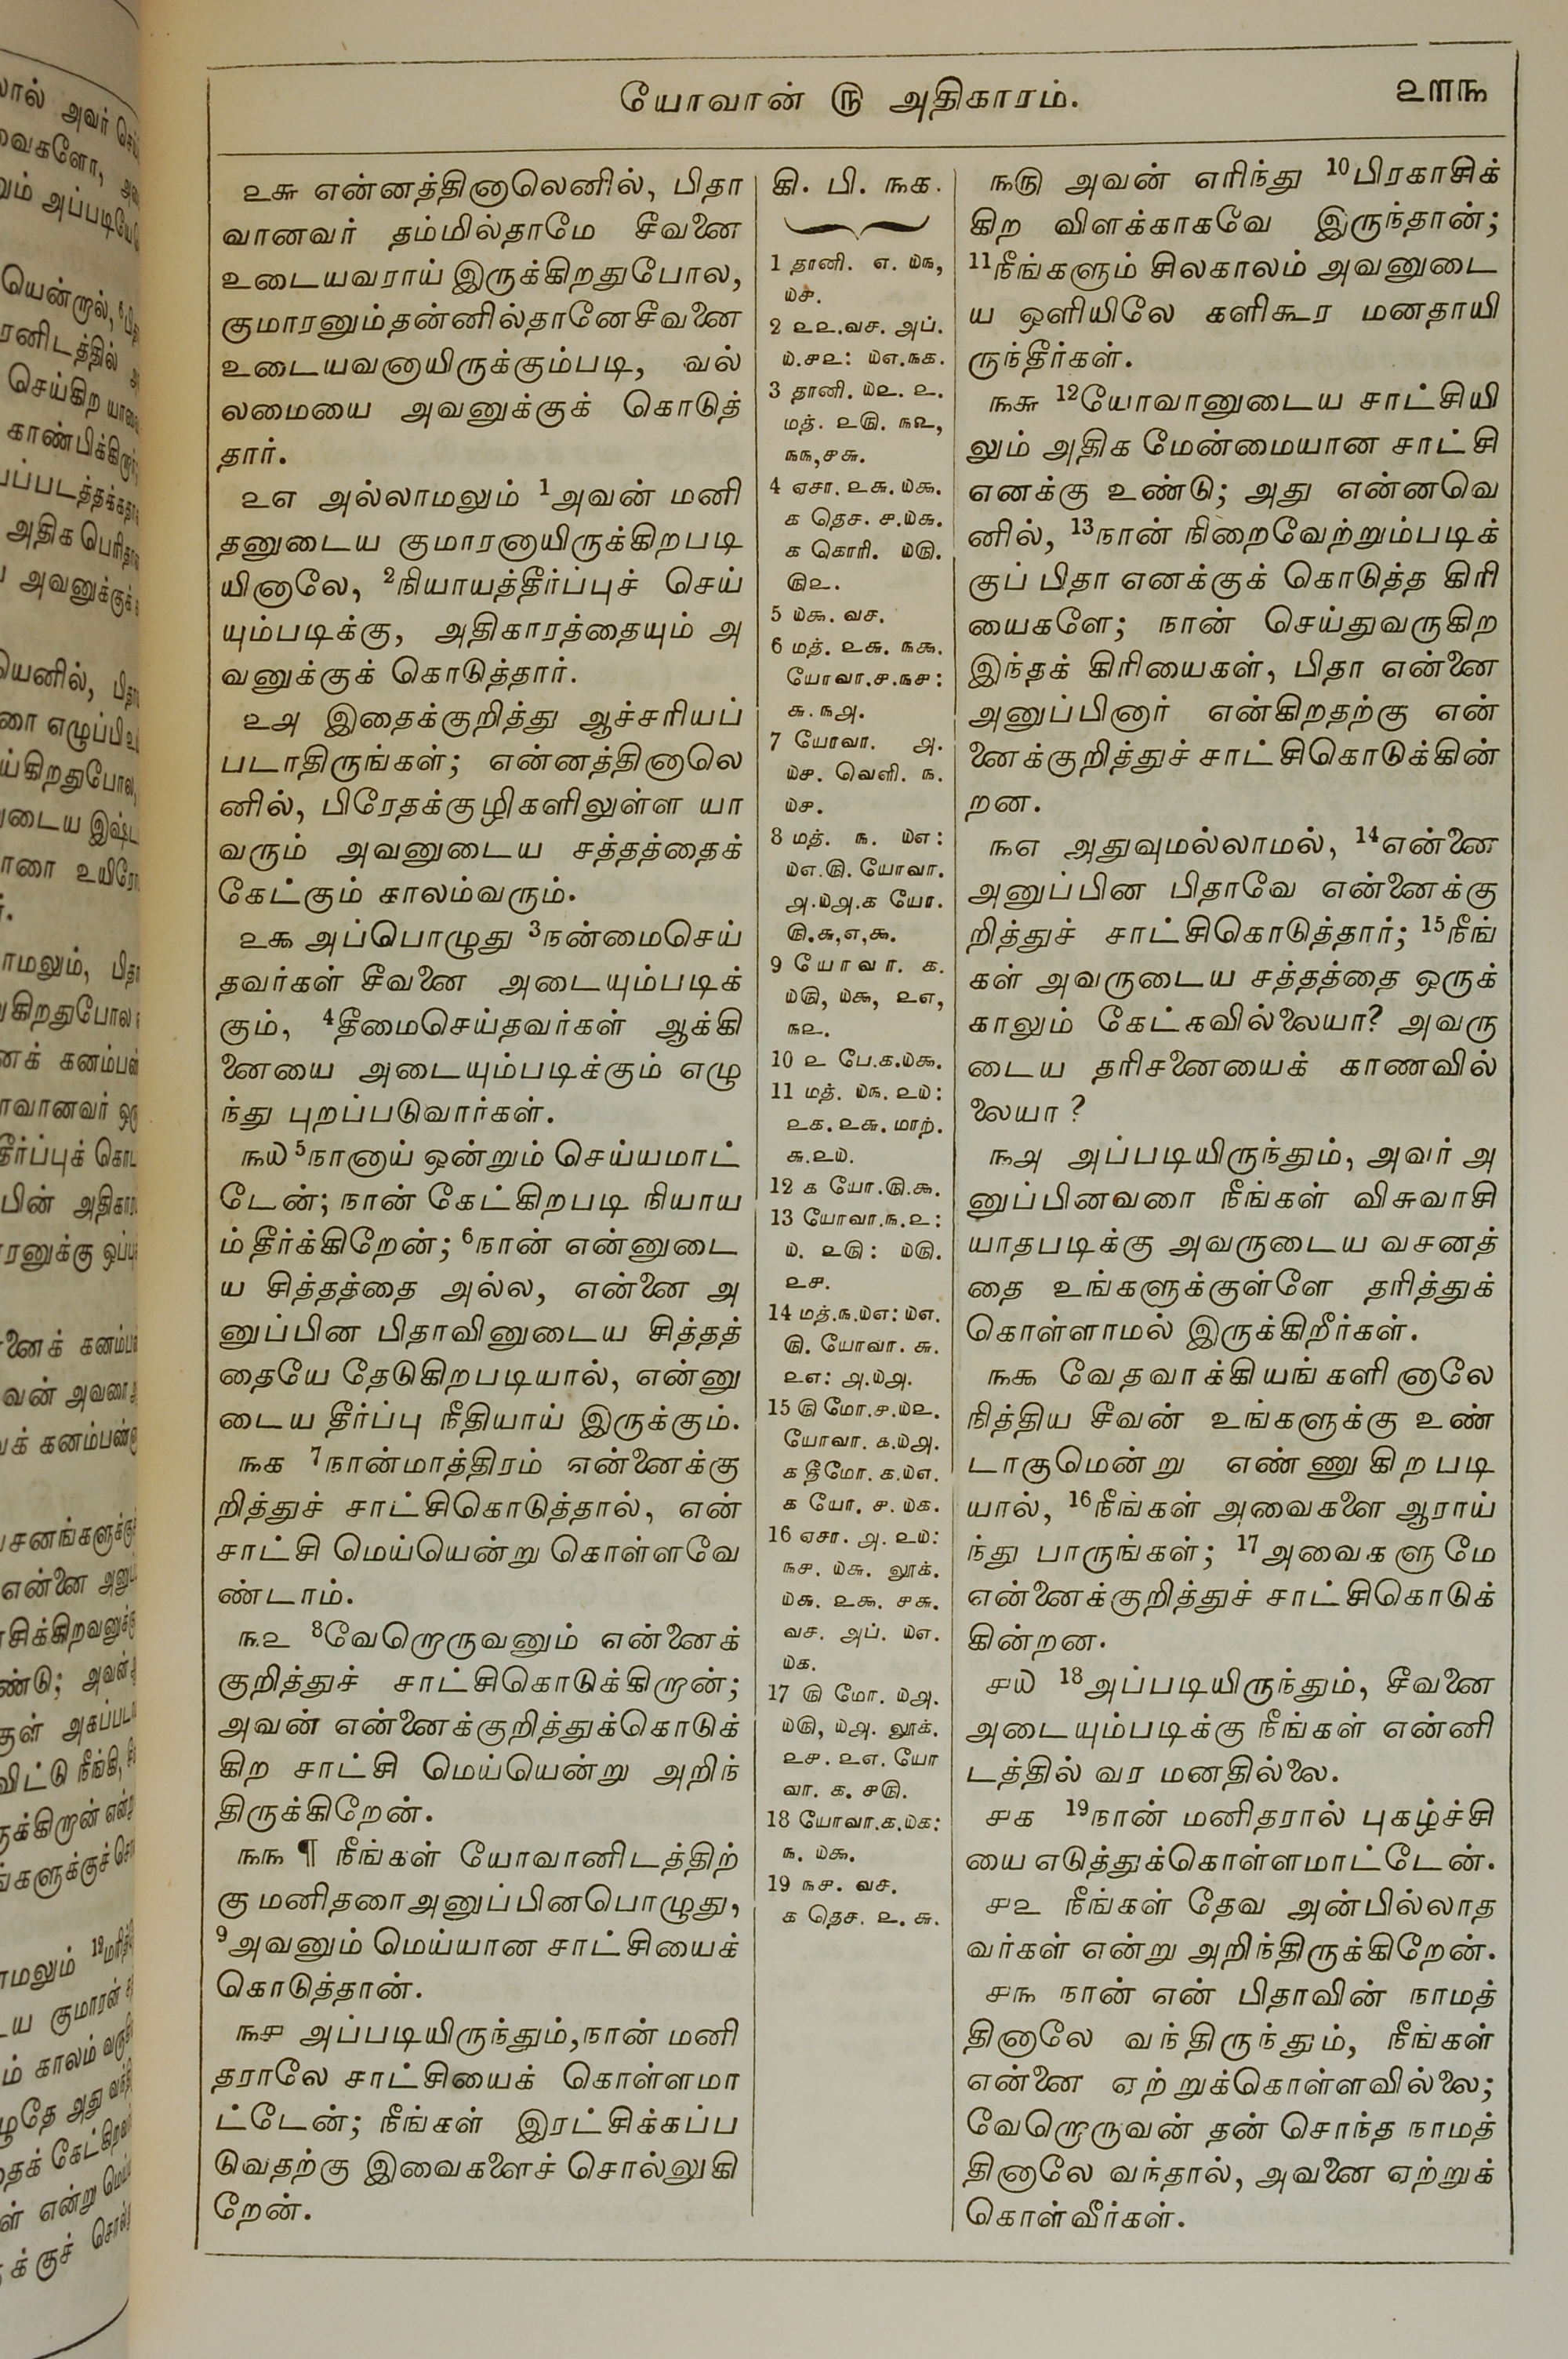 யோவான் ௫ அதிகாரம். ௨௱௩
௨௬ என்னத்தினாலெனில், பிதா
வானவர் தம்மில்தாமே சீவனை
உடையவராய் இருக்கிறதுபோல,
குமாரனும்தன்னில்தானேசீவனை
உடையவனாயிருக்கும்படி, வல்
லமையை அவனுக்குக் கொடுத்
தார்.
௨௭ அல்லாமலும் 1அவன் மனி
தனுடைய குமாரனாயிருக்கிறபடி
யினாலே, 2நியாயத்தீர்ப்புச் செய்
யும்படிக்கு, அதிகாரத்தையும் அ
வனுக்குக் கொடுத்தார்.
௨௮ இதைக்குறித்து ஆச்சரியப்
படாதிருங்கள்; என்னத்தினாலெ
னில், பிரேதக்குழிகளிலுள்ள யா
வரும் அவனுடைய சத்தத்தைக்
கேட்கும் காலம்வரும்.
௨௯ அப்பொழுது 3நன்மைசெய்
தவர்கள் சீவனை அடையும்படிக்
கும், 4தீமைசெய்தவர்கள் ஆக்கி
னையை அடையும்படிக்கும் எழு
ந்து புறப்படுவார்கள்.
௩௰ 5நானாய் ஒன்றும் செய்யமாட்
டேன்; நான் கேட்கிறபடி நியாய
ம்தீர்க்கிறேன்; 6நான் என்னுடை
ய சித்தத்தை அல்ல, என்னை அ
னுப்பின பிதாவினுடைய சித்தத்
தையே தேடுகிறபடியால், என்னு
டைய தீர்ப்பு நீதியாய் இருக்கும்.
௩௧ 7நான்மாத்திரம் என்னைக்கு
றித்துச் சாட்சிகொடுத்தால், என்
சாட்சி மெய்யென்று கொள்ளவே
ண்டாம்.
௩௨ 8வேறொருவனும் என்னைக்
குறித்துச் சாட்சிகொடுக்கிறான்;
அவன் என்னைக்குறித்துக்கொடுக்
கிற சாட்சி மெய்யென்று அறிந்
திருக்கிறேன்.
௩௩ ¶ நீங்கள் யோவானிடத்திற்
கு மனிதரைஅனுப்பினபொழுது,
9அவனும் மெய்யான சாட்சியைக்
கொடுத்தான்.
௩௪ அப்படியிருந்தும்,நான் மனி
தராலே சாட்சியைக் கொள்ளமா
ட்டேன்; நீங்கள் இரட்சிக்கப்ப
டுவதற்கு இவைகளைச் சொல்லுகி
றேன்.
கி. பி. ௩௧.
1 தானி. ௭. ௰௩,
௰௪.
2 ௨௨.வச. அப்.
௰.௪௨: ௰௭.௩௧.
3 தானி. ௰௨. ௨.
மத். ௨௫. ௩௨,
௩௩,௪௬.
4 ஏசா. ௨௬.௰௯.
௧ தெச. ௪.௰௬.
௧ கொரி. ௰௫.
௫௨.
5 ௰௯. வச.
6 மத். ௨௬. ௩௯.
யோவா.௪.௩௪:
௬. ௩௮.
7 யோவா. ௮.
௰௪. வெளி. ௩.
௰௪.
8 மத். ௩. ௰௭:
௰௭.௫. யோவா.
௮.௰௮.௧ யோ.
௫.௬,௭,௯.
9 யோவா. ௧.
௰௫, ௰௯, ௨௭,
௩௨.
10 ௨ பே.௧.௰௯.
11 மத். ௰௩. ௨௰:
௨௧. ௨௬. மாற்.
௬.௨௰.
12 ௧ யோ.௫.௯.
13 யோவா.௩.௨:
௰. ௨௫: ௰௫.
௨௪.
14 மத்.௩.௰௭: ௰௭.
௫. யோவா. ௬.
௨௭: ௮.௰௮.
15 ௫ மோ.௪.௰௨.
யோவா. ௧.௰௮.
௧ தீமோ. ௧.௰௭.
௧ யோ. ௪. ௰௧.
16 ஏசா. ௮. ௨௰:
௩௪. ௰௬. லூக்.
௰௬. ௨௯. ௪௬.
வச. அப். ௰௭.
௰௧.
17 ௫ மோ. ௰௮.
௰௫, ௰௮. லூக்.
௨௪. ௨௭. யோ
வா. ௧. ௪௫.
18 யோவா.௧.௰௧:
௩. ௰௯.
19 ௩௪. வச.
௧ தெச. ௨. ௬.
௩௫ அவன் எரிந்து 10பிரகாசிக்
கிற விளக்காகவே இருந்தான்;
11நீங்களும் சிலகாலம் அவனுடை
ய ஒளியிலே களிகூர மனதாயி
ருந்தீர்கள்.
௩௬ 12யோவானுடைய சாட்சியி
லும் அதிக மேன்மையான சாட்சி
எனக்கு உண்டு; அது என்னவெ
னில், 13நான் நிறைவேற்றும்படிக்
குப் பிதா எனக்குக் கொடுத்த கிரி
யைகளே; நான் செய்துவருகிற
இந்தக் கிரியைகள், பிதா என்னை
அனுப்பினார் என்கிறதற்கு என்
னைக்குறித்துச் சாட்சிகொடுக்கின்
றன.
௩௭ அதுவுமல்லாமல், 14என்னை
அனுப்பின பிதாவே என்னைக்கு
றித்துச் சாட்சிகொடுத்தார்; 15நீங்
கள் அவருடைய சத்தத்தை ஒருக்
காலும் கேட்கவில்லையா? அவரு
டைய தரிசனையைக் காணவில்
லையா?
௩௮ அப்படியிருந்தும், அவர் அ
னுப்பினவரை நீங்கள் விசுவாசி
யாதபடிக்கு அவருடைய வசனத்
தை உங்களுக்குள்ளே தரித்துக்
கொள்ளாமல் இருக்கிறீர்கள்.
௩௯ வேதவாக்கியங்களினாலே
நித்திய சீவன் உங்களுக்கு உண்
டாகுமென்று எண்ணுகிறபடி
யால், 16நீங்கள் அவைகளை ஆராய்
ந்து பாருங்கள்; 17அவைகளுமே
என்னைக்குறித்துச் சாட்சிகொடுக்
கின்றன.
௪௰ 18அப்படியிருந்தும், சீவனை
அடையும்படிக்கு நீங்கள் என்னி
டத்தில் வர மனதில்லை.
௪௧ 19நான் மனிதரால் புகழ்ச்சி
யை எடுத்துக்கொள்ளமாட்டேன்.
௪௨ நீங்கள் தேவ அன்பில்லாத
வர்கள் என்று அறிந்திருக்கிறேன்.
௪௩ நான் என் பிதாவின் நாமத்
தினாலே வந்திருந்தும், நீங்கள்
என்னை ஏற்றுக்கொள்ளவில்லை;
வேறொருவன் தன் சொந்த நாமத்
தினாலே வந்தால், அவனை ஏற்றுக்
கொள்வீர்கள்.